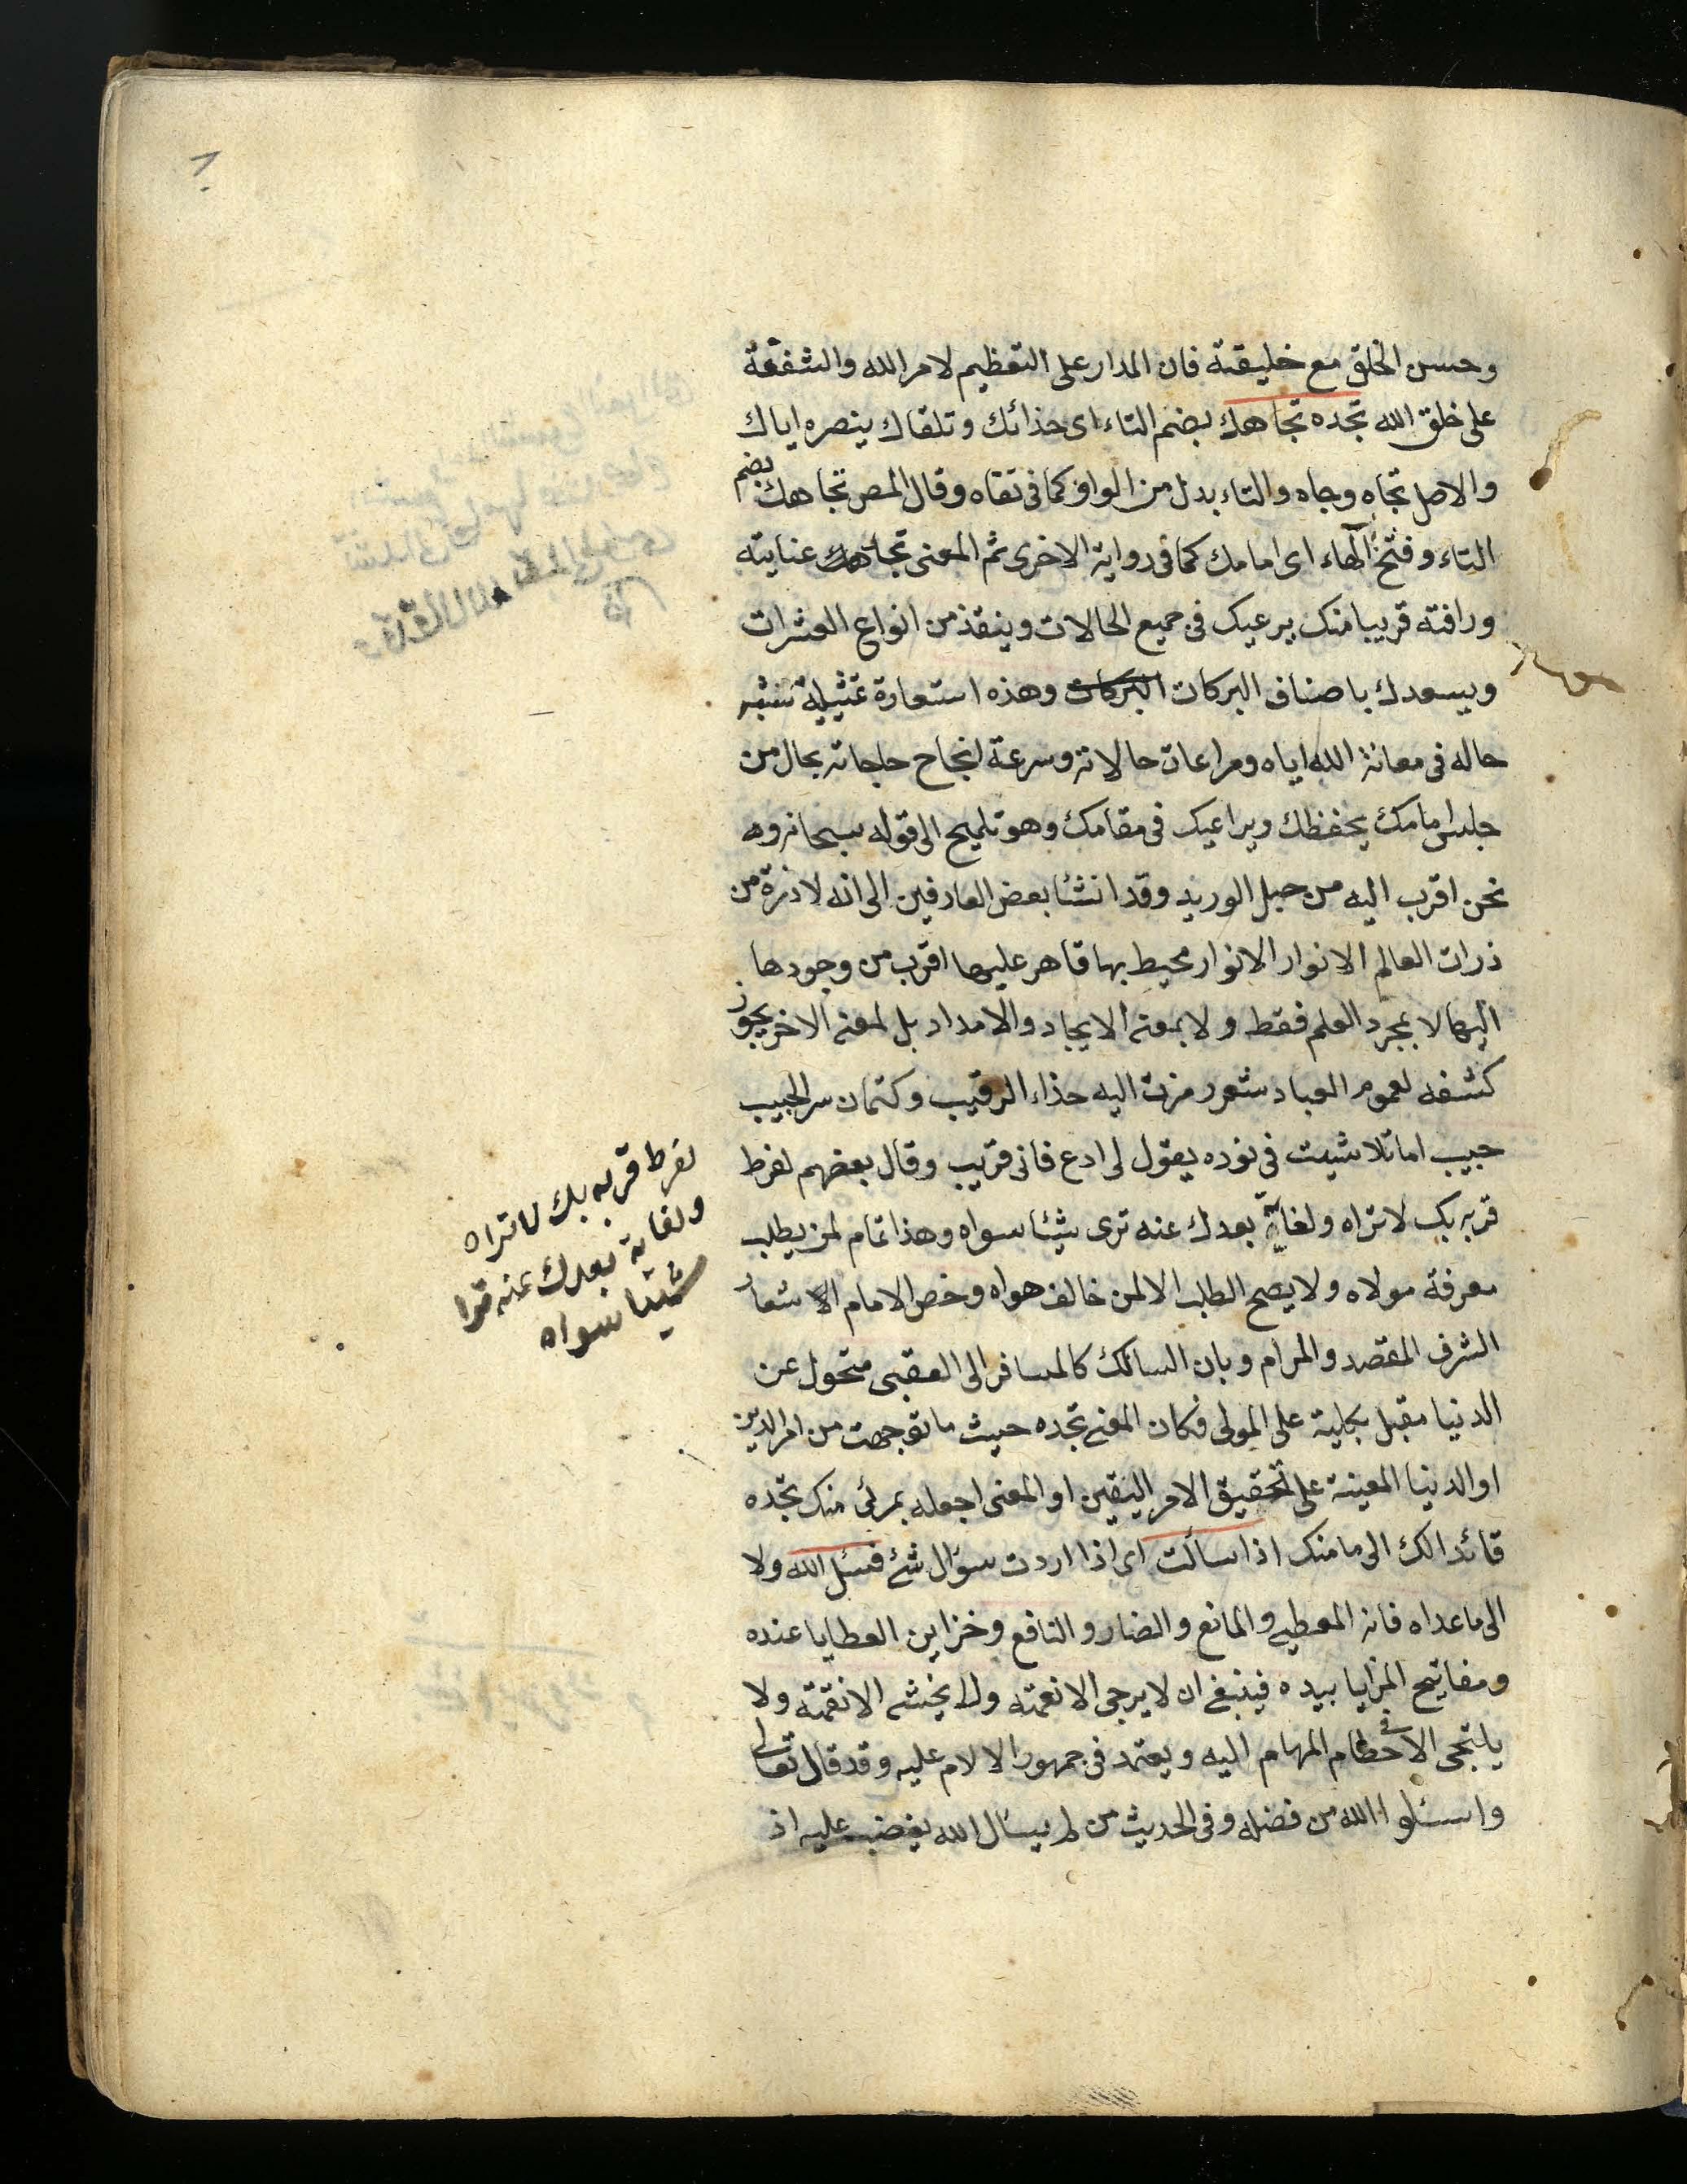 وحسن الخلق مع خليقته فان المدار على التعظيم لامر الله والشفقة
على خلق الله تجده تجاهك بضم التاء اى حذائك وتلقاك ينصره اياك
والاصل تجاه وجاه والتاء بدل من الواو كما فى تقاه وقال المص تجاهك بضم
التاء وفتح الهاء اى امامك كما فى رواية الاخرى ثم المعنى تجد عنايته
ورافته قريبا منك يرعيك فى جميع الحالات وينقذ من انواع العثرات
ويسعدك باصناف البركات البركات وهذه استعارة تمثيلية شبه
حاله فى معانة الله اياه ومراعات حالاته وسرعة انجاح حاجاته بحال من
جلس امامك يحفظك ويراعيك فى مقامك وهو تلميح الى قوله سبحانه و
نحن اقرب اليه من حبل الوريد وقد انشئا بعض العارفين الى انه لا ذرة من
ذرات العالم الا نوار الانوار محيط بها قاهر عليها اقرب من وجودها
اليها لا بمجرد العلم فقط ولا بمعنى الايجاد والامداد بل لمعنى الاخر يجوز
كشفه لعموم العباد شعر رمزت اليه حذاء الرقيب وكتمان سر الحبيب
حبيب اما تلاشيت فى نوره يقول لى ادع فانى قريب وقال بعضهم لفرط
قربه بك لا تراه ولغاية بعدك عنه ترى شيئا سواه وهذا تمام لمن يطلب
معرفة مولاه ولا يصح الطلب الا لمن خالف هواه وخص الامام الاشعار
الشرف المقصد والمرام وبان السالك كالمسافر الى العقبى متحول عن
الدنيا مقبل بكلية على المولى فكان المعنى تجده حيث ما توجهت من امر الدين
او الدنيا المعينة على تحقيق الامر اليقين او المعنى اجعله بمرئى منك تجده
قائدا لك الى مامنك اذا سالت اى اذا اردت سؤال شئ فسئل الله ولا
الى ما عداه فانه المعطى والمانع والضار والنافع وخزاين العطايا عنده
ومفاتيح المزايا بيده فينبغى ان لا يرجى الا نعمته ولا يخشى الا نقمته ولا
يلتجى الا فى حطام المهام اليه ويعتمد فى جمهور الالام عليه وقد قال تعالى
واسئلوا الله من فضله وفى الحديث من لم يسال الله يغضب عليه اذ
لفرط قربه بك لا تراه
ولغاية بعدك عنه ترا
شيئا سواه